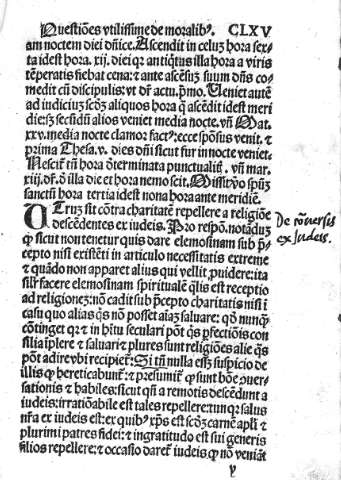 Questiões vtilissime de moralibꝰ. CLXV
am noctem diei dñice. Ascendit in celuʒ hora sex-
ta idest hora. xij. diei qꝛ antiqͥtus illa hora a viris
tẽperatis fiebat cena: ⁊ ante ascẽsuʒ suum dñs co-
medit cũ discipulis: vt dꝛ actu. pͥmo. Ueniet autẽ
ad iudiciuʒ scðʒ aliquos hora q̃ ascẽdit idest meri
diei: sʒ secũdũ alios veniet media nocte. vñ Mat.
xxv. media nocte clamoꝛ factꝰ: ecce spõsus venit. ⁊
prima Thesa. v. dies dñi sicut fur in nocte veniet.
Nescit̃ tñ hora ðterminata punctualiṡ. vñ mar.
xiij. dꝛ. ð illa die et hora nemo scit. Misit vo spũʒ
sanctũ hora tertia idest nona hora ante meridiẽ.
UTruʒ sit cõtra charitatẽ repellere a religiõe
descẽdentes ex iudeis. Pro respõ. notãduʒ
ꝙ sicut non tenetur quis dare elemosinam sub p̃-
cepto nisi existẽti in articulo necessitatis extreme
⁊ quãdo non apparet alius qui vellit ꝓuidere: ita
silꝛ facere elemosinam spiritualẽ q̃lis est receptio
ad religionẽʒ: nõ cadit sub p̃cepto charitatis nisi ĩ
casu quo alias q̃s nõ posset aĩaʒ saluare: qð nunqͣʒ
cõtinget qꝛ ⁊ in hĩtu seculari põt q̃s ꝑfectiõis con
silia ĩplere ⁊ saluari ⁊ plures sunt religiões alie q̃s
põt adire vbi recipiet̃. Si tñ nulla esʒ suspicio de
illis ꝙ hereticabunt̃: ⁊ p̃sumit̃ ꝙ sunt bõe ꝯuer-
sationis ⁊ habiles: sicut qñ a remotis descẽdunt a
iudeis: irratiõabile est tales repellere: tunqꝫ salus
nr̃a ex iudeis est: ex quibꝰ xp̃s est scðʒ carnẽ apl̃i ⁊
plurimi patres fidei: ⁊ ingratitudo est sui generis
filios repellere: ⁊ occasio daret̃ iudeis ꝙ nõ veniãt
y
De cõversis
ex Judeis.